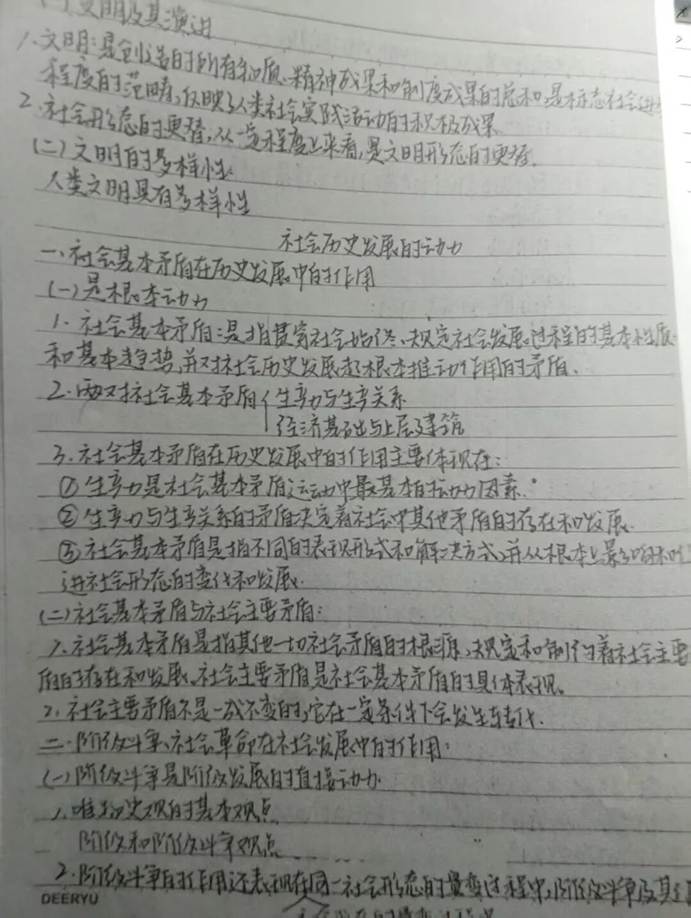 (一)文明及其演进
1.文明:是创造的所有物质、精神成果和制度成果的总和,是标志社会进
程度的范畴,反映了人类社会实践活动的积极成果
2.社会形态的更替,从一定程度上来看,是文明形态的更替.
(二)文明的多样性
人类文明具有多样性
社会历史发展的动力
一、社会基本矛盾在历史发展中的作用
(一)是根本动力
1.社会基本矛盾:是指贯穿社会始终、规定社会发展过程的基本性质
和基本趋势,并对社会历史发展起根本推动作用的矛盾.
2.两对社会基本矛盾{生产力与生产关系
经济基础与上层建筑
3.社会基本矛盾在历史发展中的作用主要体现在:
①生产力是社会基本矛盾运动中最基本的动力因素.
②生产力与生产关系的矛盾决定着社会中其他矛盾的存在和发展.
③社会基本矛盾是指不同的表现形式和解决方式,并从根本上影响和
进社会形态的变化和发展.
(二)社会基本矛盾与社会主要矛盾:
1.社会基本矛盾是指其他一切社会矛盾的根源,规定和制约着社会主要
盾的存在和发展。社会主要矛盾是社会基本矛盾的具体表现。
2.社会主要矛盾不是一成不变的,它在一定条件下会发生转化.
二.阶级斗争、社会革命在社会发展中的作用.
(一)阶级斗争是阶级发展的直接动力
1.唯物史观的基本观点
阶级和阶级斗争观点
2.阶级斗争的作用还表现在同一社会形态的量变过程中,阶级斗争及其
DEERYU